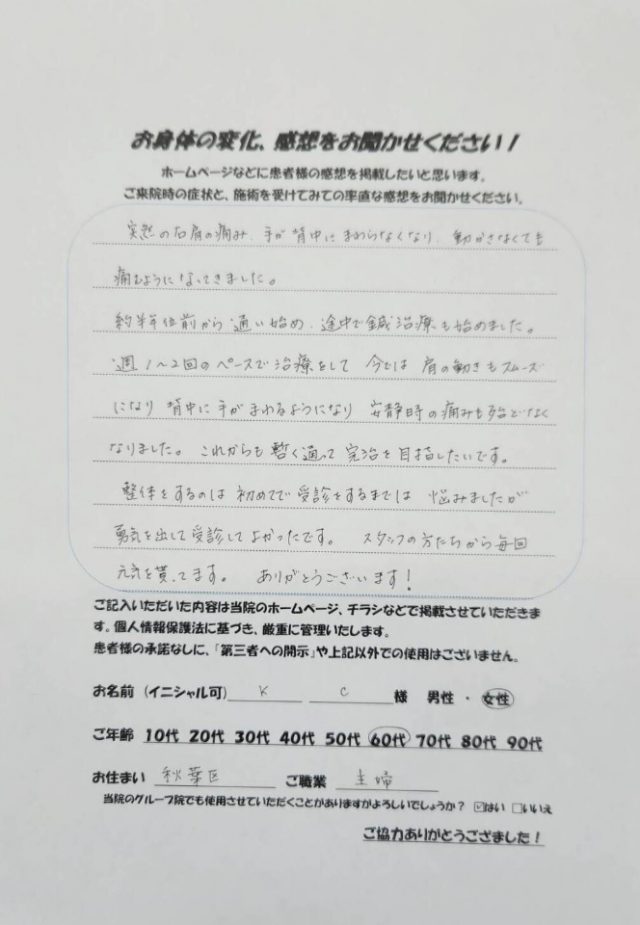 お身体の変化、感想をお聞かせください！
ホームページなどに患者様の感想を掲載したいと思います。
ご来院時の症状と、施術を受けてみての率直な感想をお聞かせください。
突然の右肩の痛み、手が背中にまわらなくなり、動かさなくても
痛むようになってきました。
約半年位前から通い始め、途中で鍼治療も始めました。
週1〜2回のペースで治療をして 今では 肩の動きもスムーズ
になり 背中に手がまわるようになり 安静時の痛みも殆どなく
なりました。 これからも暫く通って 完治を目指したいです。
整体をするのは 初めてで受診をするまでは 悩みましたが
勇気を出して受診してよかったです。 スタッフの方たちから毎回
元気を貰ってます。 ありがとうございます！
ご記入いただいた内容は当院のホームページ、チラシなどで掲載させていただきま
す。個人情報保護法に基づき、厳重に管理いたします。
患者様の承諾なしに、「第三者への開示」や上記以外での使用はございません。
お名前（イニシャル可） K C 様 男性 ・ 女性
ご年齢 10代 20代 30代 40代 50代 60代 70代 80代 90代
お住まい 秋葉区 ご職業 主婦
当院のグループ院でも使用させていただくことがありますがよろしいでしょうか？ ☑はい □いいえ
ご協力ありがとうござました！